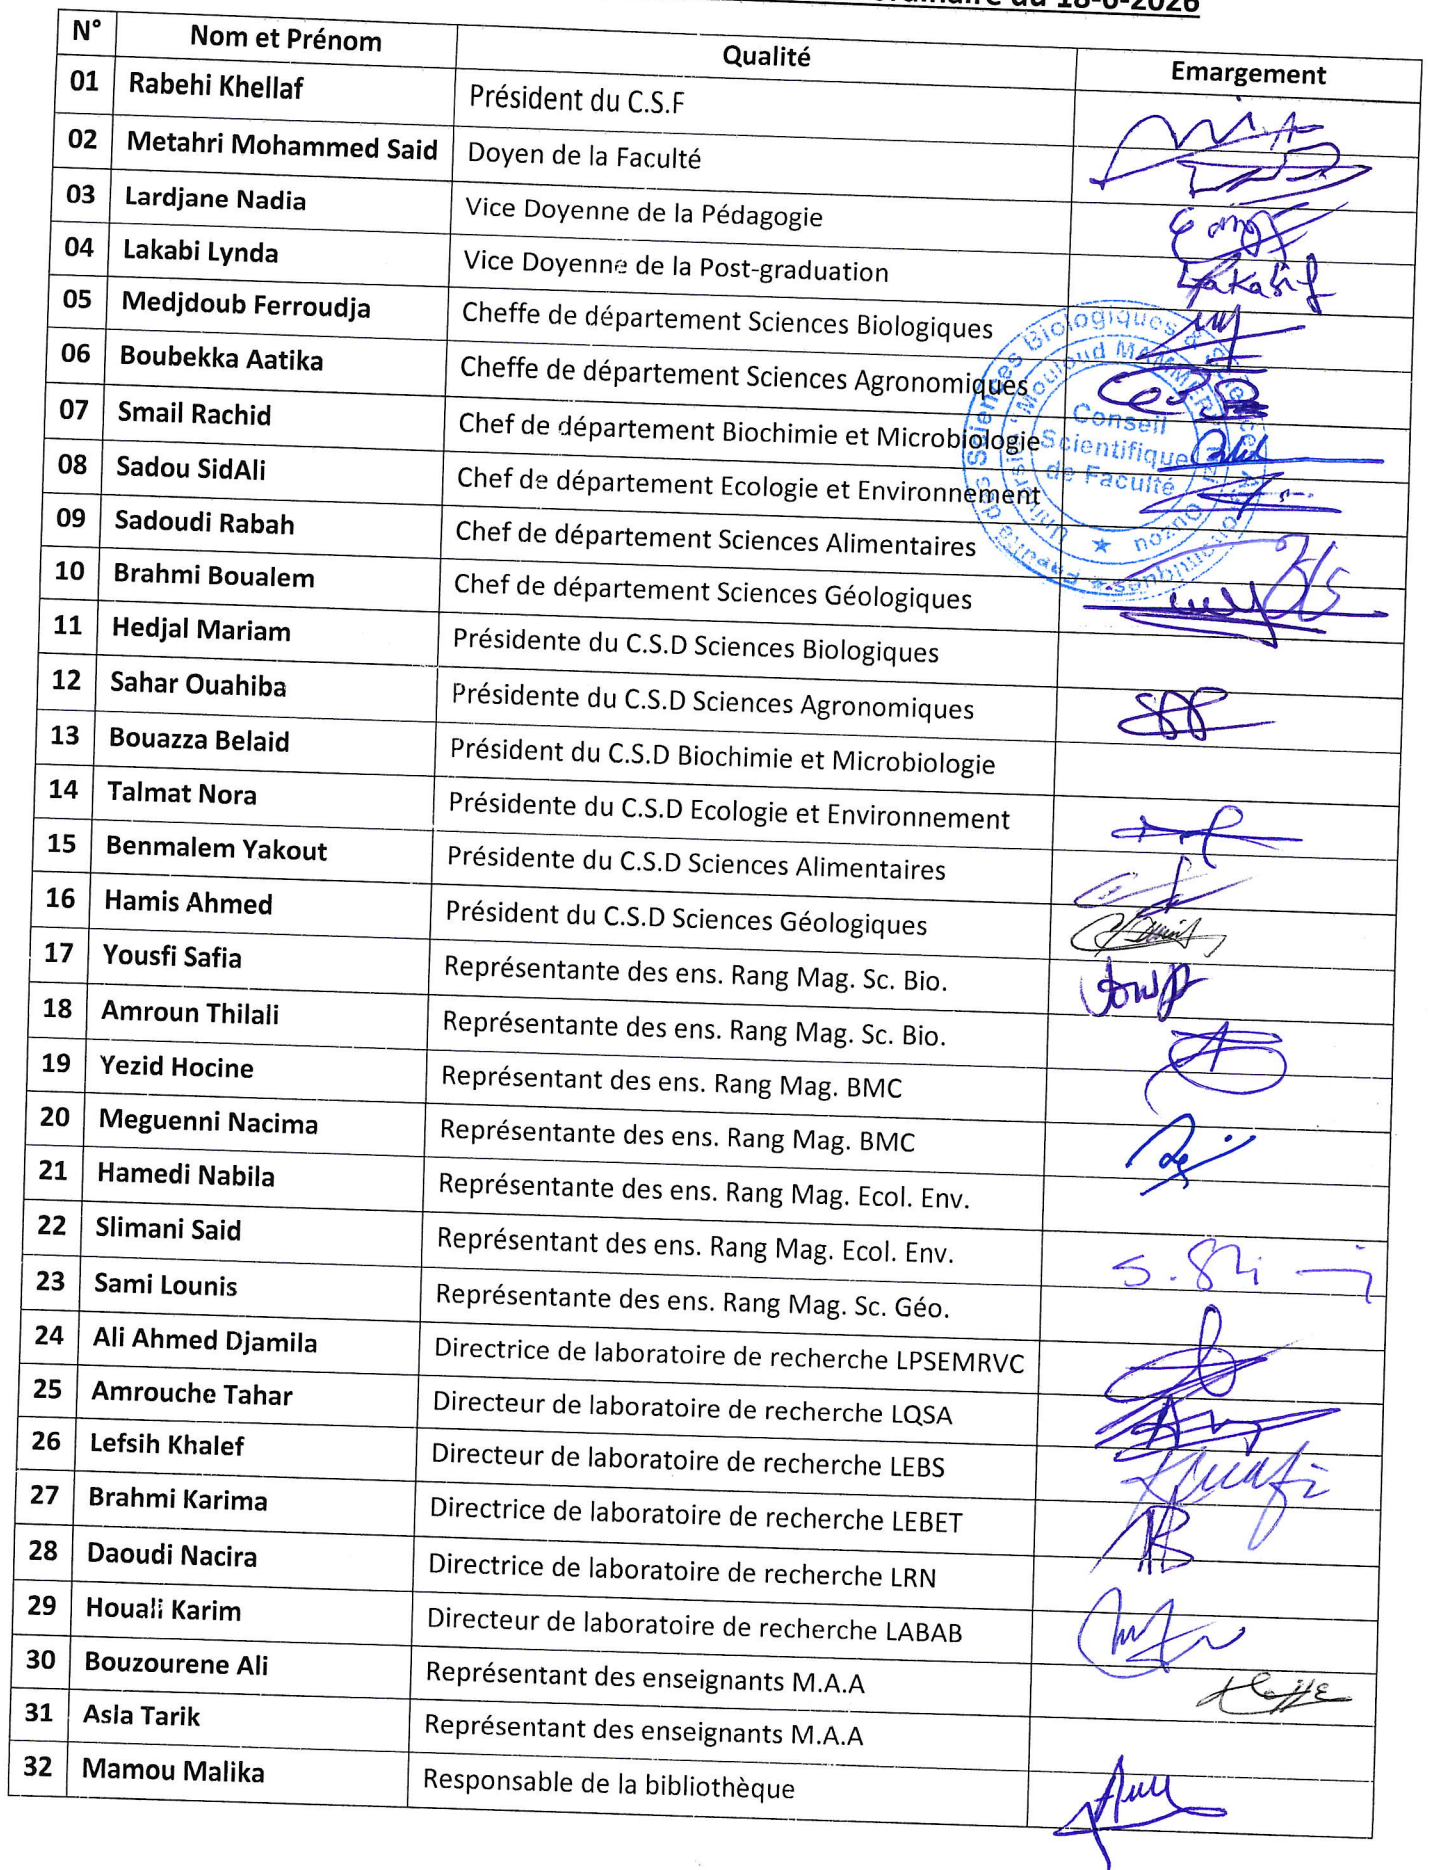 ordinaire du 18-6-2026
N° Nom et Prénom Qualité Emargement
01 Rabehi Khellaf Président du C.S.F
02 Metahri Mohammed Said Doyen de la Faculté
03 Lardjane Nadia Vice Doyenne de la Pédagogie
04 Lakabi Lynda Vice Doyenne de la Post-graduation Lakabi
05 Medjdoub Ferroudja Cheffe de département Sciences Biologiques
06 Boubekka Aatika Cheffe de département Sciences Agronomiques
07 Smail Rachid Chef de département Biochimie et Microbiologie
08 Sadou SidAli Chef de département Ecologie et Environnement
09 Sadoudi Rabah Chef de département Sciences Alimentaires
10 Brahmi Boualem Chef de département Sciences Géologiques
11 Hedjal Mariam Présidente du C.S.D Sciences Biologiques
12 Sahar Ouahiba Présidente du C.S.D Sciences Agronomiques
13 Bouazza Belaid Président du C.S.D Biochimie et Microbiologie
14 Talmat Nora Présidente du C.S.D Ecologie et Environnement
15 Benmalem Yakout Présidente du C.S.D Sciences Alimentaires
16 Hamis Ahmed Président du C.S.D Sciences Géologiques
17 Yousfi Safia Représentante des ens. Rang Mag. Sc. Bio.
18 Amroun Thilali Représentante des ens. Rang Mag. Sc. Bio.
19 Yezid Hocine Représentant des ens. Rang Mag. BMC
20 Meguenni Nacima Représentante des ens. Rang Mag. BMC
21 Hamedi Nabila Représentante des ens. Rang Mag. Ecol. Env.
22 Slimani Said Représentant des ens. Rang Mag. Ecol. Env.
23 Sami Lounis Représentante des ens. Rang Mag. Sc. Géo.
24 Ali Ahmed Djamila Directrice de laboratoire de recherche LPSEMRVC
25 Amrouche Tahar Directeur de laboratoire de recherche LQSA
26 Lefsih Khalef Directeur de laboratoire de recherche LEBS
27 Brahmi Karima Directrice de laboratoire de recherche LEBET
28 Daoudi Nacira Directrice de laboratoire de recherche LRN
29 Houali Karim Directeur de laboratoire de recherche LABAB
30 Bouzourene Ali Représentant des enseignants M.A.A
31 Asla Tarik Représentant des enseignants M.A.A
32 Mamou Malika Responsable de la bibliothèque
Faculté des Sciences Biologiques &
Mouloud
Ouzou
Conseil
Scientifique
de Faculté